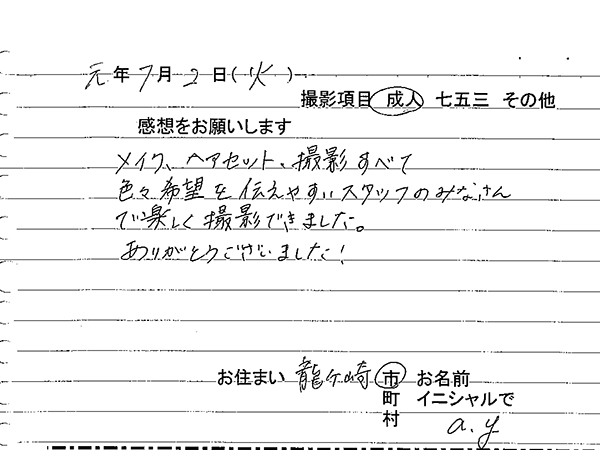 元年7月2日(火)
撮影項目 成人 七五三 その他
感想をお願いします
メイク、ヘアセット、撮影すべて
色々希望を伝えやすいスタッフのみなさん
で楽しく撮影できました。
ありがとうございました!
お住まい 龍ケ崎 市 お名前
町 イニシャルで
村 a.y